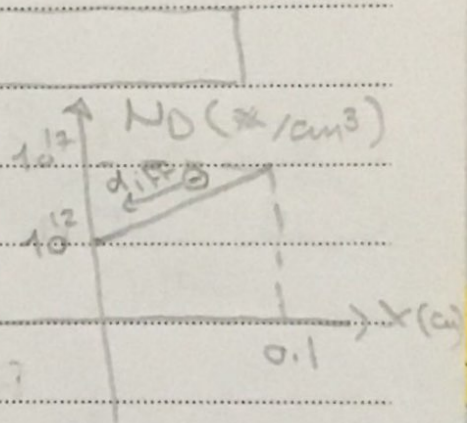 N_D (#/cm³)
10¹⁷
diff ⊖
10¹²
x (cm)
0.1
?